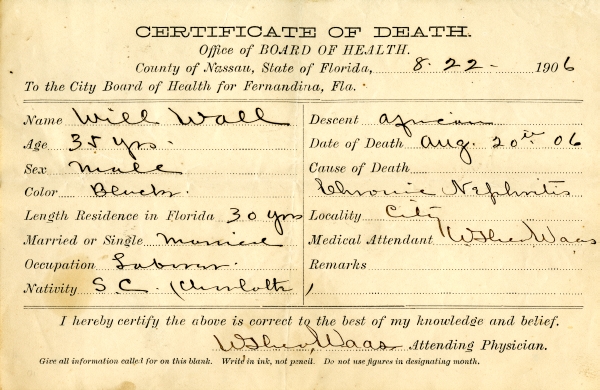 CERTIFICATE OF DEATH.
Office of BOARD OF HEALTH.
County of Nassau, State of Florida, 8. 22 - 1906
To the City Board of Health for Fernandina, Fla.
Name Will Wall
Age 35 yrs.
Sex Male
Color Black.
Length Residence in Florida 30 yrs
Married or Single Married
Occupation Laborer.
Nativity S. C. (Charlotte)
Descent African
Date of Death Aug. 20th 06
Cause of Death
Chronic Nephritis
Locality City
Medical Attendant Waas
Remarks
I hereby certify the above is correct to the best of my knowledge and belief.
Waas Attending Physician.
Give all information called for on this blank. Write in ink, not pencil. Do not use figures in designating month.